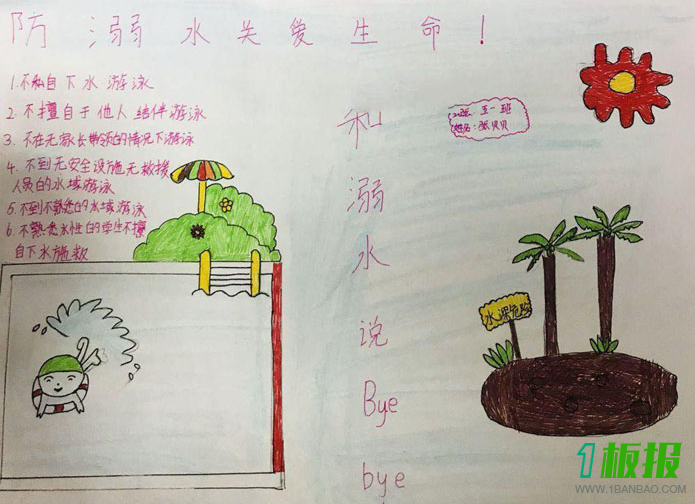 防溺水关爱生命！
1.不私自下水游泳
2.不擅自于他人结伴游泳
3.不在无家长带领的情况下游泳
4.不到无安全设施无救援
人员的水域游泳
5.不到不熟悉的水域游泳
6.不熟悉水性的学生不擅
自下水施救
和
溺
水
说
Bye
bye
五一班
姓名：张贝贝
水深危险
1板报
WWW.1BANBAO.COM